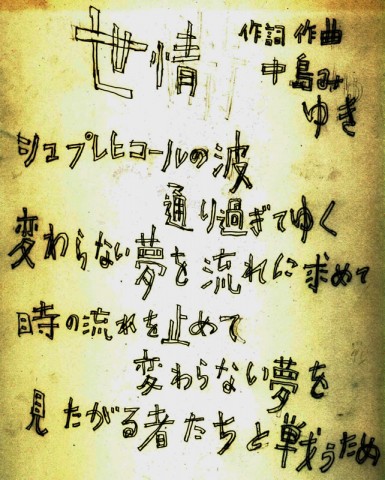 世情
作詞 作曲
中島み
ゆき
シュプレヒコールの波
通り過ぎてゆく
変わらない夢を流れに求めて
時の流れを止めて
変わらない夢を
見たがる者たちと戦うため